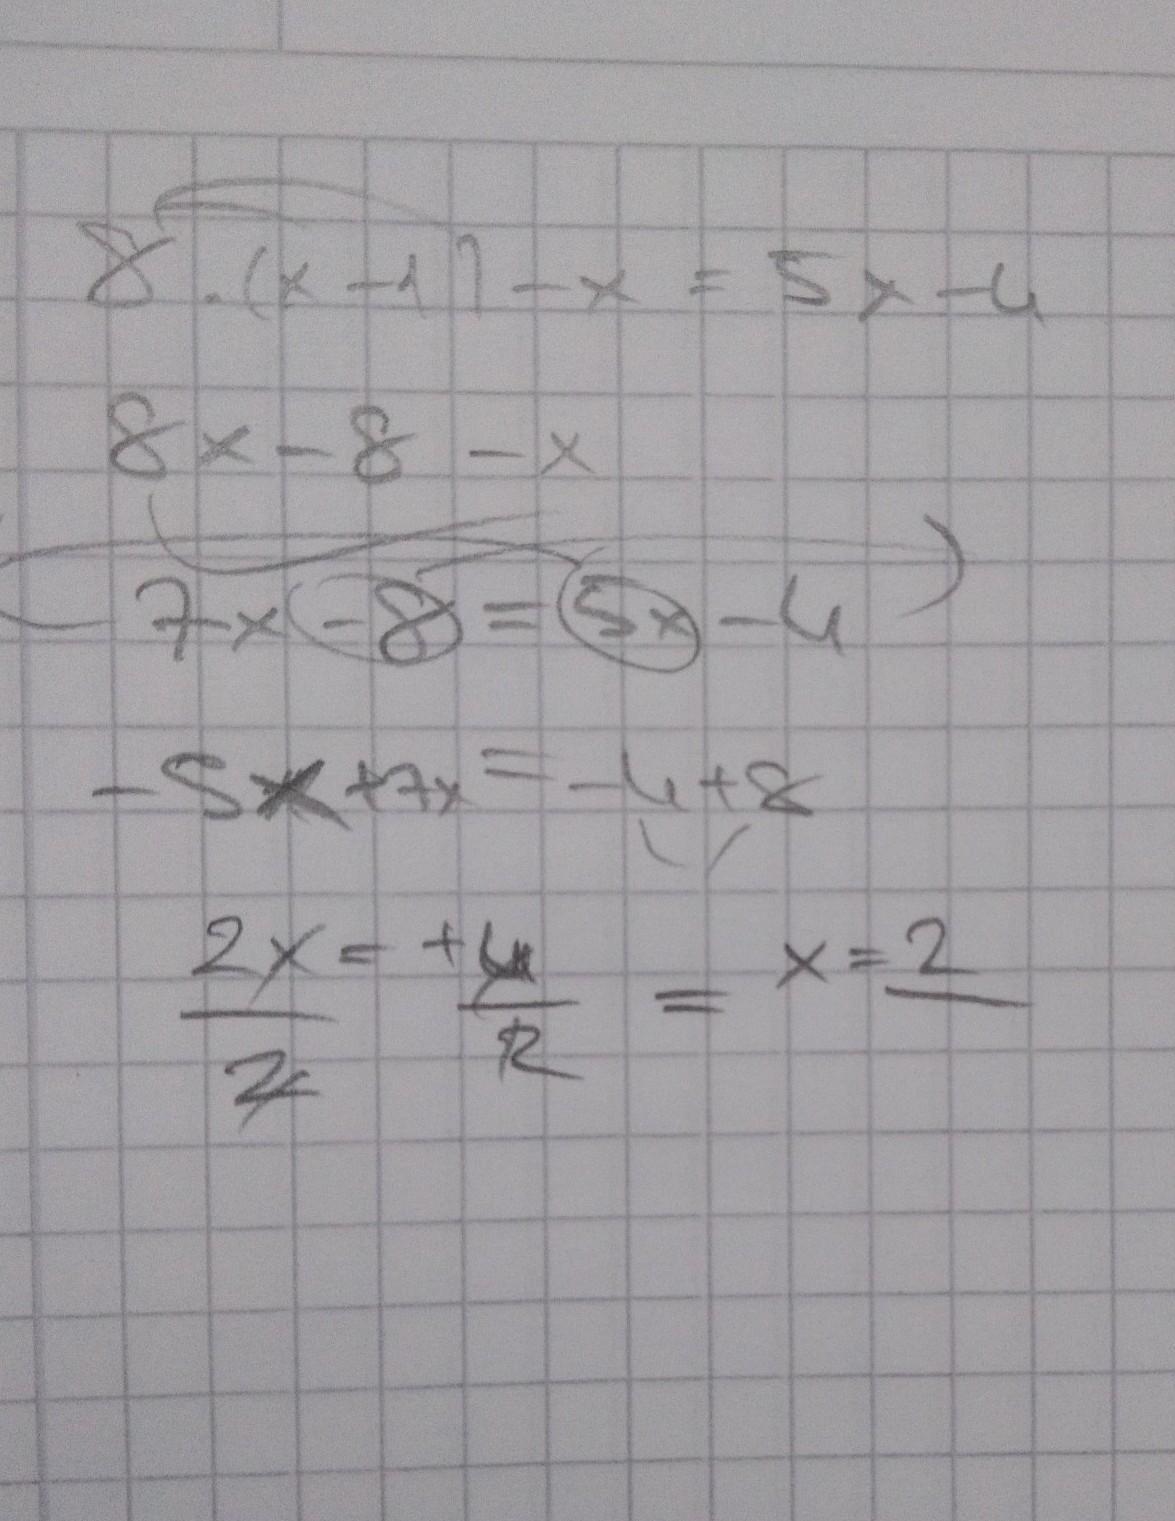 8.(x-1)-x = 5x-4
8x-8-x
7x-8=5x-4
-5x+7x=-4+8
2x/2 = +4/2 = x=2